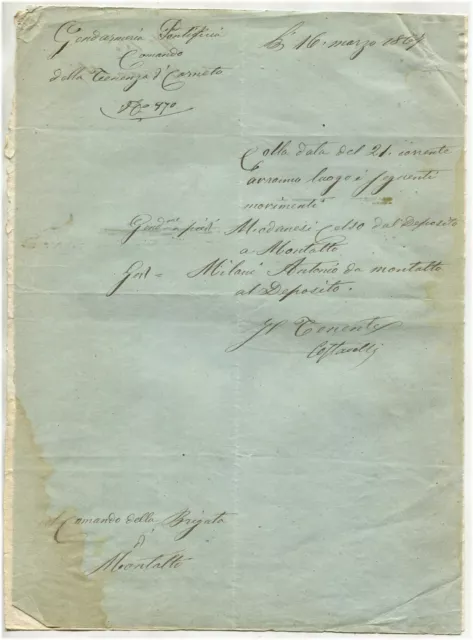 Gendarmeria Pontificia
Comando
della Tenenza di Corneto
No 970
Li 16. marzo 1864
Colla data del 21. corrente
avranno luogo i seguenti
movimenti
Modernesi Celso dal Deposito
a Montalto
Milani Antonio da montalto
al Deposito.
Il Tenente
Comando della Brigata
di
Montalto